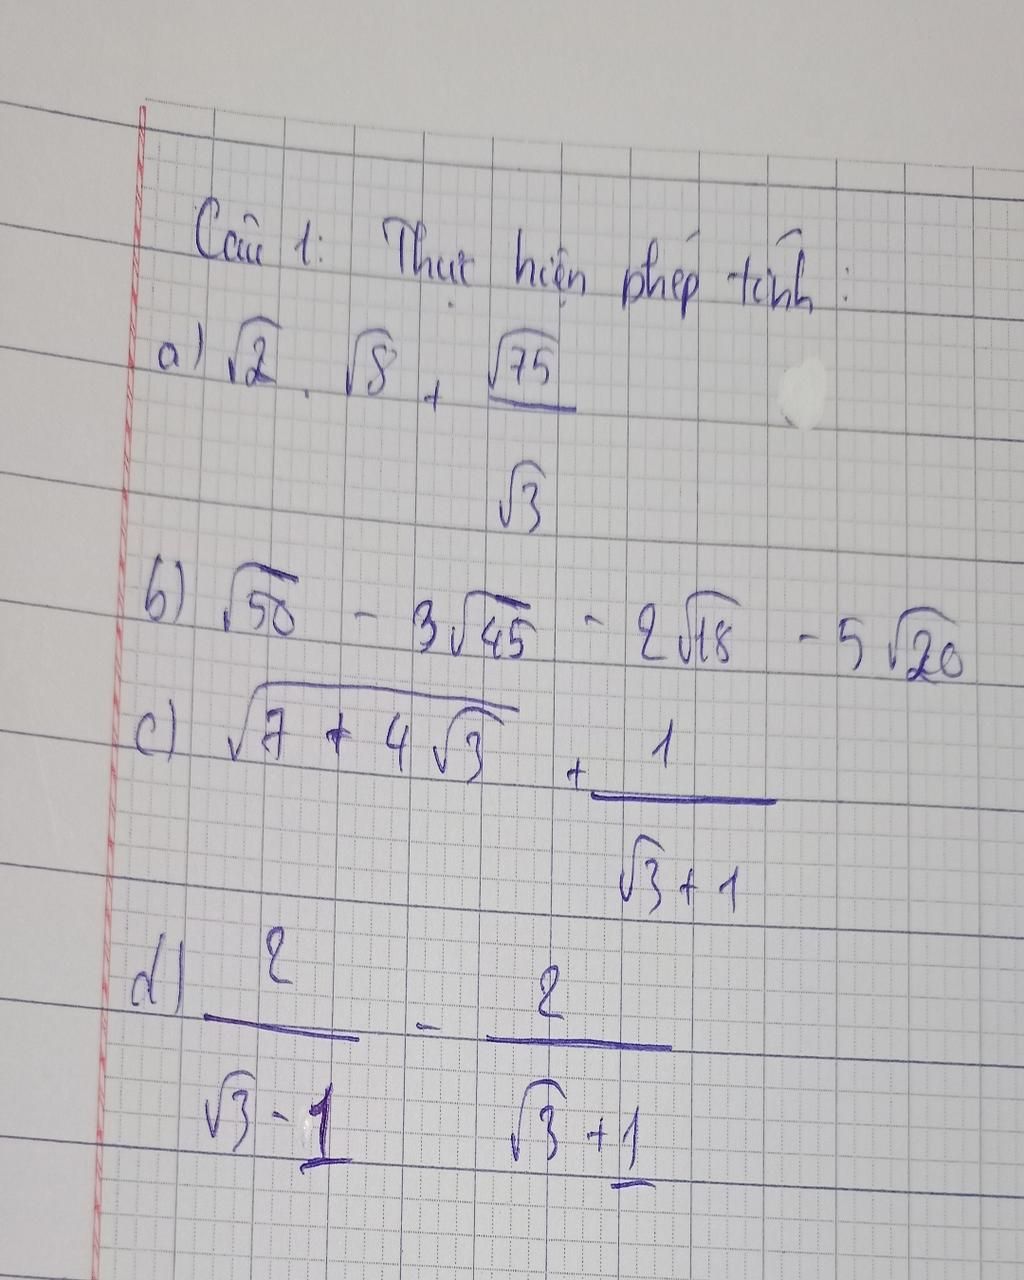 Câu 1: Thực hiện phép tính:
a) √2 . √8 + √75
√3
b) √50 - 3√45 - 2√18 - 5√20
c) √(7 + 4√3) + 1
√3 + 1
d) 2 - 2
√3 - 1 √3 + 1